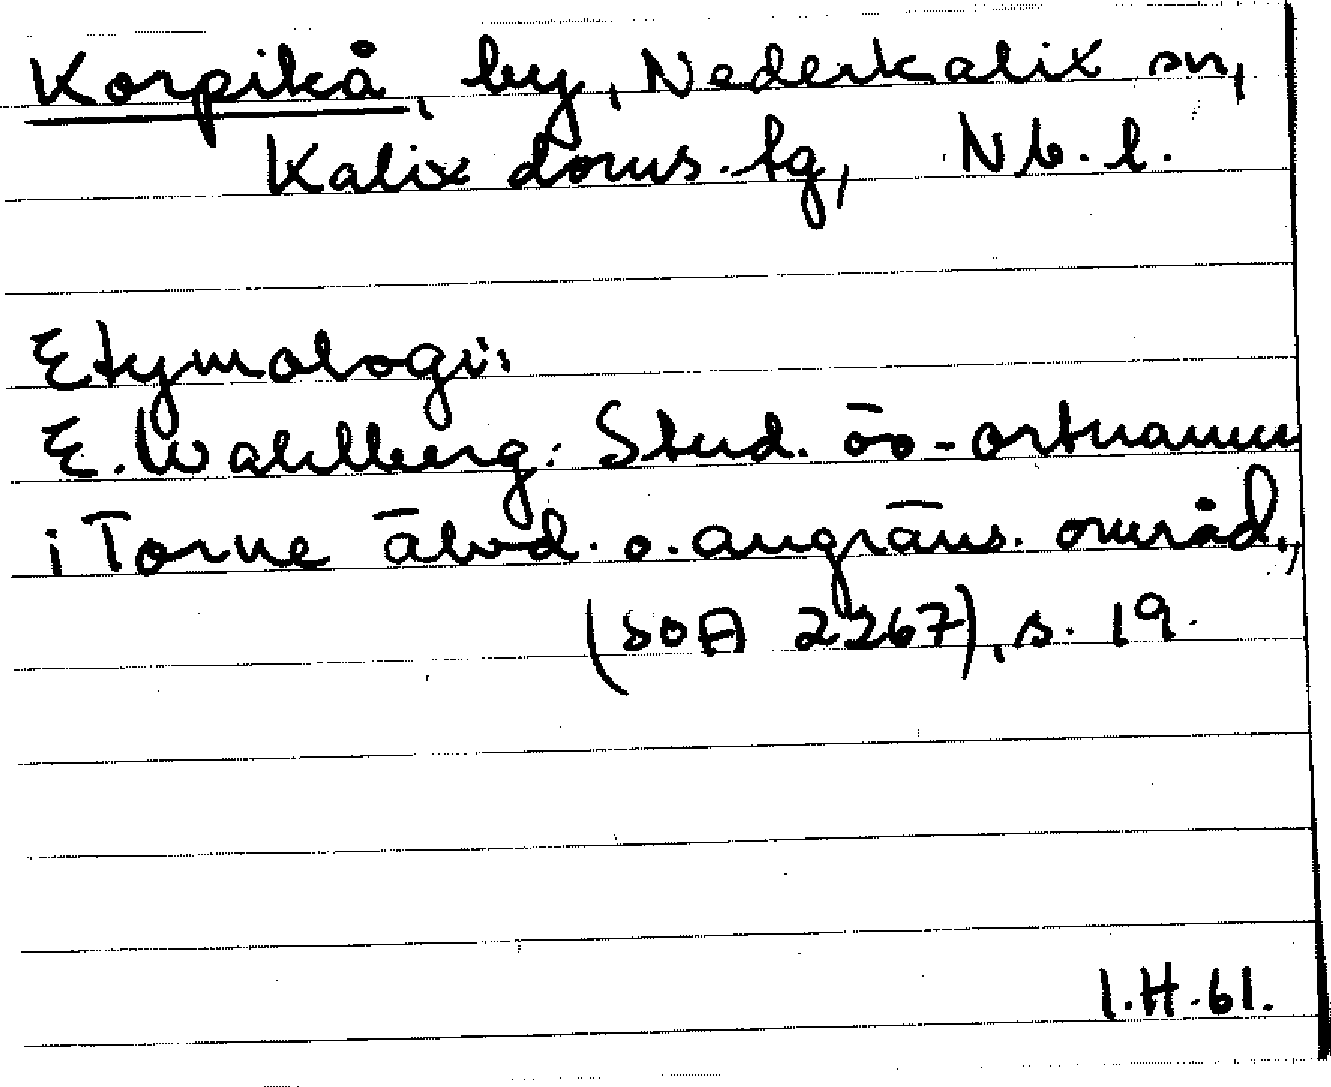 Korpikå, by, Nederkalix sn,
Kalix doms. tg, Nb. l.
Etymologi:
E. Wahlberg: Stud. öv. ortnamn
i Torne älvd. o. angräns. områd.,
(SOA 2267), s. 19.
I.H. 61.